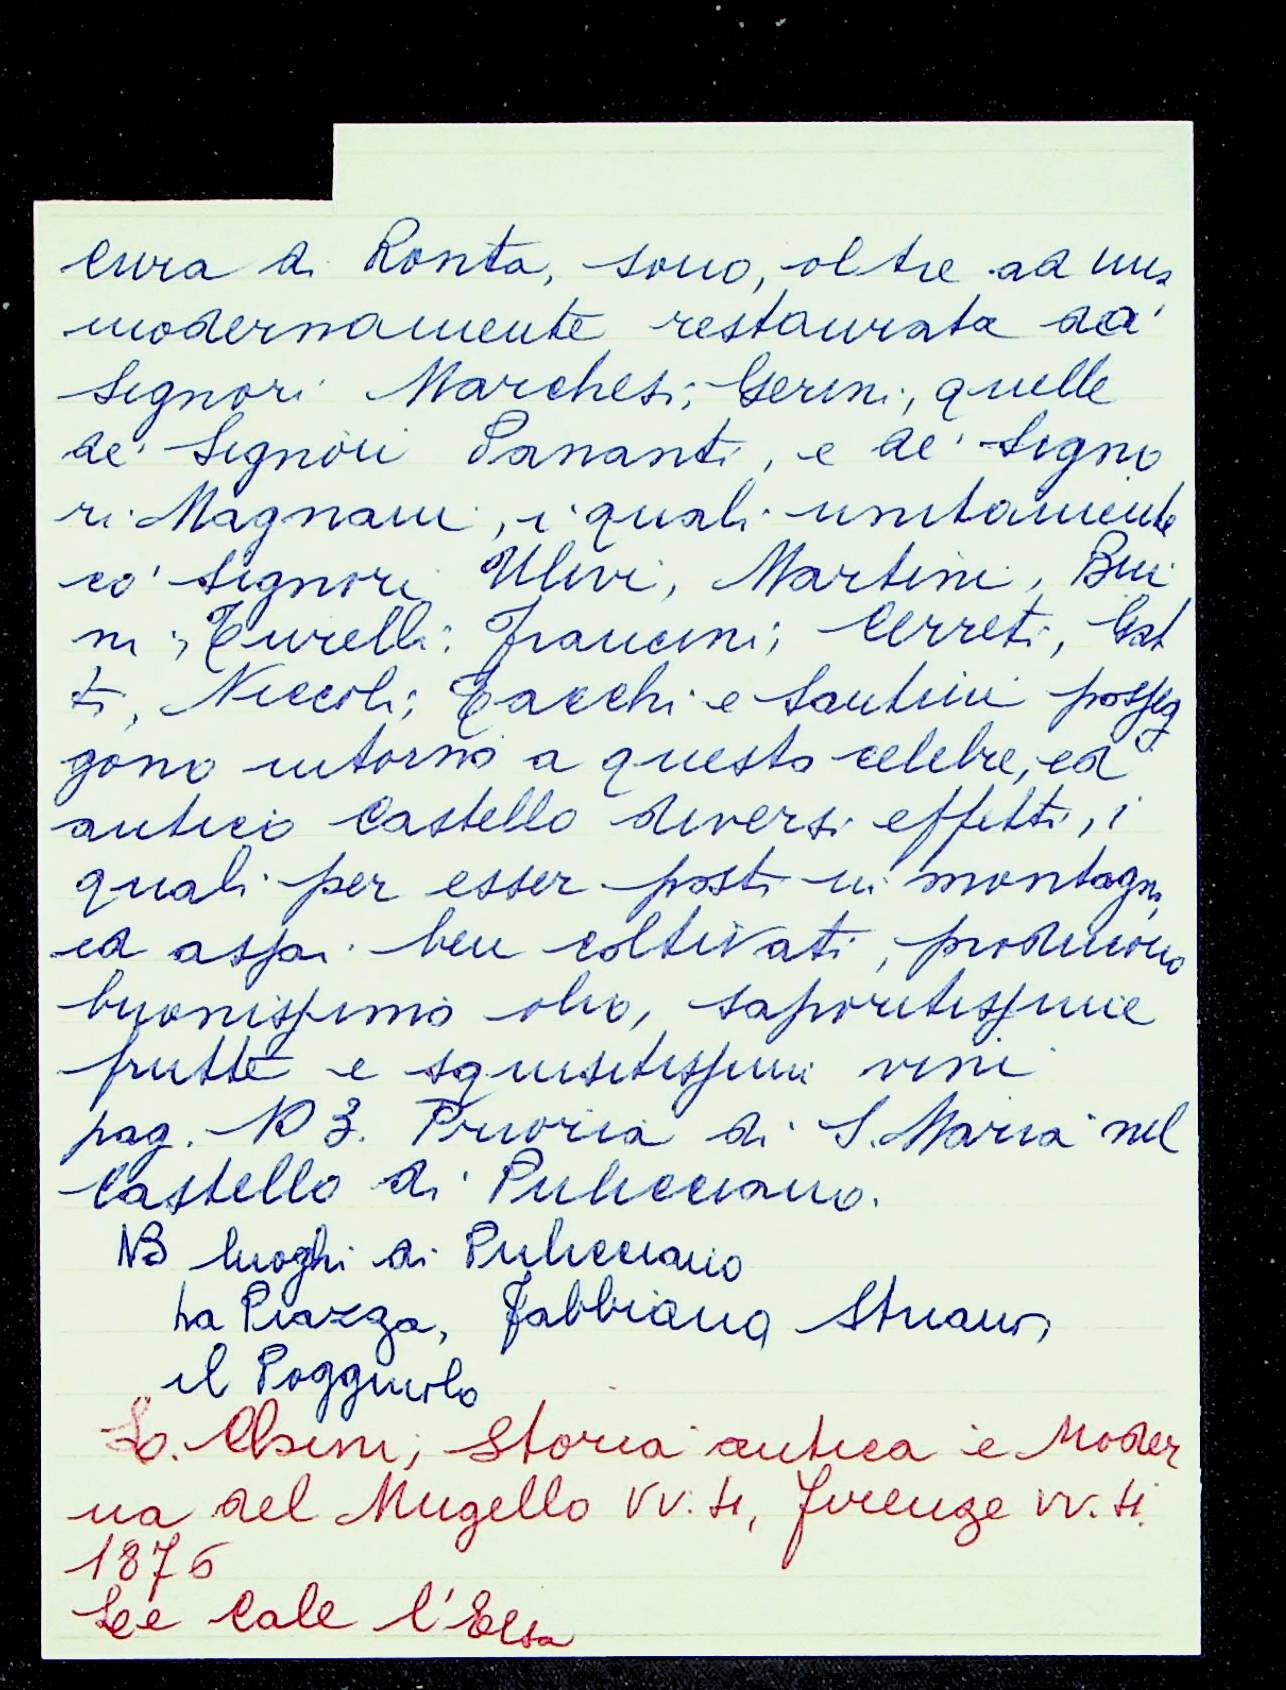 cura di Ronta, sono, oltre ad una
modernamente restaurata da'
Signori Marchesi Gerini, quelle
de' Signori Pananti, e de' Signo
ri Magnani, i quali unitamente
co' Signori Ulivi, Martini, Bui
ni, Turelli, Francini, Cerreti, Gat
ti, Niccoli, Tacchi e Santini posseg
gono intorno a questo celebre, ed
antico Castello diversi effetti, i
quali per esser posti in montagna,
ed assai ben coltivati, producono
buonissimo olio, saporitissime
frutte e squisitissimi vini
pag. 3. Prioria di S. Maria nel
Castello di Pulicciano.
NB luoghi di Pulicciano
La Piazza, Fabbiana
il Poggiuolo
Lo. Chini, Storia antica e Moder
na del Mugello VV. II, Firenze VV. II.
1875